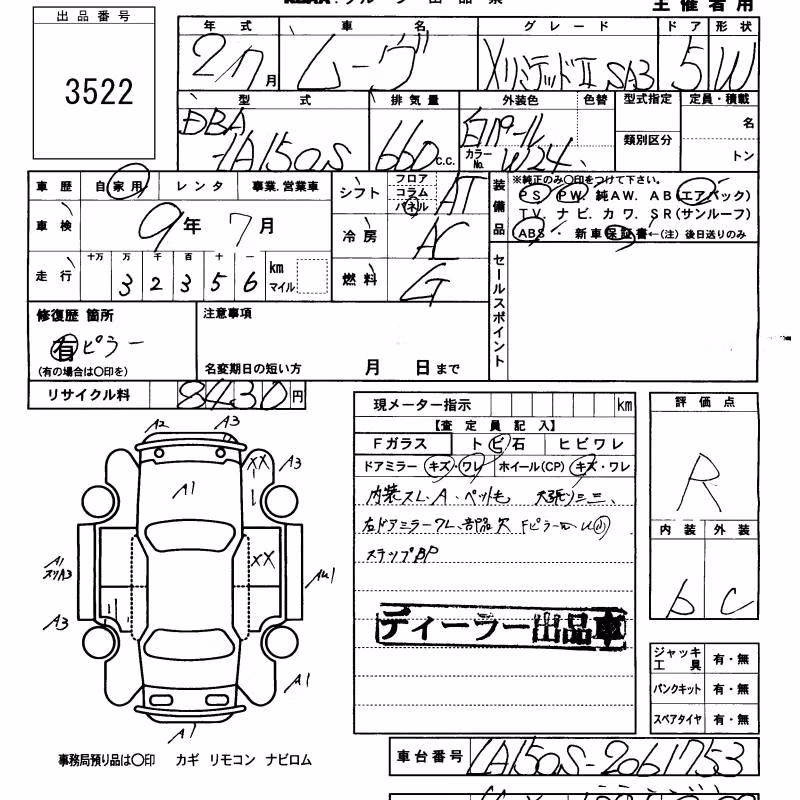 主催者用
出品番号
3522
年式 車名 グレード ドア 形状
27月 ムーヴ XリミテッドII SA3 5 W
型式 排気量 外装色 色替 型式指定 定員・積載
DBA-LA150S 660 c.c. 白パール カラーNo. W24 類別区分 名 トン
車歴 自家用 レンタ 事業.営業車
シフト フロア コラム パネル AT
装備品 ※純正のみ〇印をつけて下さい。
PS PW. 純AW. AB(エアバック)
TV. ナビ. カワ. SR(サンルーフ)
ABS・ 新車保証書←(注) 後日送りのみ
車検 9年7月
冷房 AC
走行 十万 万 千 百 十 一 32356 km マイル
燃料 G
セールスポイント
修復歴 箇所
有 ピラー
(有の場合は〇印を)
注意事項
名変期日の短い方 月 日まで
リサイクル料 8430円
現メーター指示 km
【査定員記入】
Fガラス トビ石 ヒビワレ
ドアミラー キズ・ワレ ホイール(CP) キズ・ワレ
内装スレ、A、ペット毛
右ドアミラーワレ、部品欠
ステップBP
ディーラー出品車
評価点
R
内装 外装
b C
ジャッキ工具 有・無
パンクキット 有・無
スペアタイヤ 有・無
A2 A3
XX A3
A1
XX
A1
A3
A1
A1
事務局預り品は〇印 カギ リモコン ナビロム
車台番号 LA150S-2061753